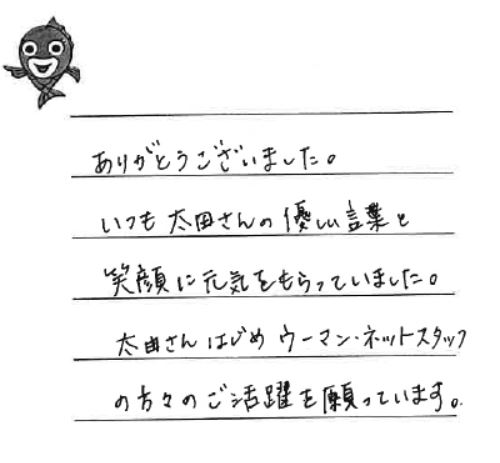 ありがとうございました。
いつも太田さんの優しい言葉と
笑顔に元気をもらっていました。
太田さんはじめウーマン・ネットスタッフ
の方々のご活躍を願っています。